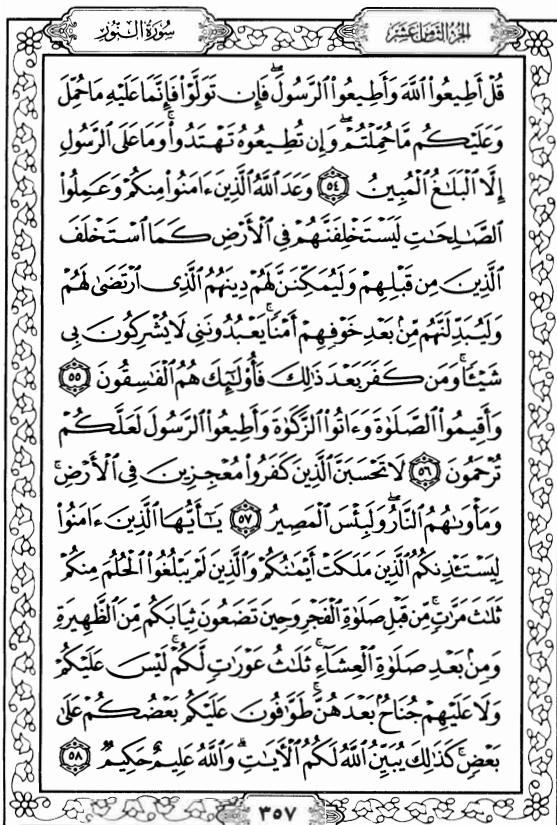 سُورَةُ النُّورِ
الجُزءُ الثَّامِنَ عَشَرَ
قُلۡ أَطِيعُواْ ٱللَّهَ وَأَطِيعُواْ ٱلرَّسُولَۖ فَإِن تَوَلَّوۡاْ فَإِنَّمَا عَلَيۡهِ مَا حُمِّلَ
وَعَلَيۡكُم مَّا حُمِّلۡتُمۡۖ وَإِن تُطِيعُوهُ تَهۡتَدُواْۚ وَمَا عَلَى ٱلرَّسُولِ
إِلَّا ٱلۡبَلَٰغُ ٱلۡمُبِينُ ٥٤ وَعَدَ ٱللَّهُ ٱلَّذِينَ ءَامَنُواْ مِنكُمۡ وَعَمِلُواْ
ٱلصَّٰلِحَٰتِ لَيَسۡتَخۡلِفَنَّهُمۡ فِي ٱلۡأَرۡضِ كَمَا ٱسۡتَخۡلَفَ
ٱلَّذِينَ مِن قَبۡلِهِمۡ وَلَيُمَكِّنَنَّ لَهُمۡ دِينَهُمُ ٱلَّذِي ٱرۡتَضَىٰ لَهُمۡ
وَلَيُبَدِّلَنَّهُم مِّنۢ بَعۡدِ خَوۡفِهِمۡ أَمۡنٗاۚ يَعۡبُدُونَنِي لَا يُشۡرِكُونَ بِي
شَيۡـٔٗاۚ وَمَن كَفَرَ بَعۡدَ ذَٰلِكَ فَأُوْلَٰٓئِكَ هُمُ ٱلۡفَٰسِقُونَ ٥٥
وَأَقِيمُواْ ٱلصَّلَوٰةَ وَءَاتُواْ ٱلزَّكَوٰةَ وَأَطِيعُواْ ٱلرَّسُولَ لَعَلَّكُمۡ
تُرۡحَمُونَ ٥٦ لَا تَحۡسَبَنَّ ٱلَّذِينَ كَفَرُواْ مُعۡجِزِينَ فِي ٱلۡأَرۡضِۚ
وَمَأۡوَىٰهُمُ ٱلنَّارُۖ وَلَبِئۡسَ ٱلۡمَصِيرُ ٥٧ يَٰٓأَيُّهَا ٱلَّذِينَ ءَامَنُواْ
لِيَسۡتَـٔۡذِنكُمُ ٱلَّذِينَ مَلَكَتۡ أَيۡمَٰنُكُمۡ وَٱلَّذِينَ لَمۡ يَبۡلُغُواْ ٱلۡحُلُمَ مِنكُمۡ
ثَلَٰثَ مَرَّٰتٖۚ مِّن قَبۡلِ صَلَوٰةِ ٱلۡفَجۡرِ وَحِينَ تَضَعُونَ ثِيَابَكُم مِّنَ ٱلظَّهِيرَةِ
وَمِنۢ بَعۡدِ صَلَوٰةِ ٱلۡعِشَآءِۚ ثَلَٰثُ عَوۡرَٰتٖ لَّكُمۡۚ لَيۡسَ عَلَيۡكُمۡ
وَلَا عَلَيۡهِمۡ جُنَاحُۢ بَعۡدَهُنَّۚ طَوَّٰفُونَ عَلَيۡكُم بَعۡضُكُمۡ عَلَىٰ
بَعۡضٖۚ كَذَٰلِكَ يُبَيِّنُ ٱللَّهُ لَكُمُ ٱلۡأٓيَٰتِۗ وَٱللَّهُ عَلِيمٌ حَكِيمٞ ٥٨
٣٥٧